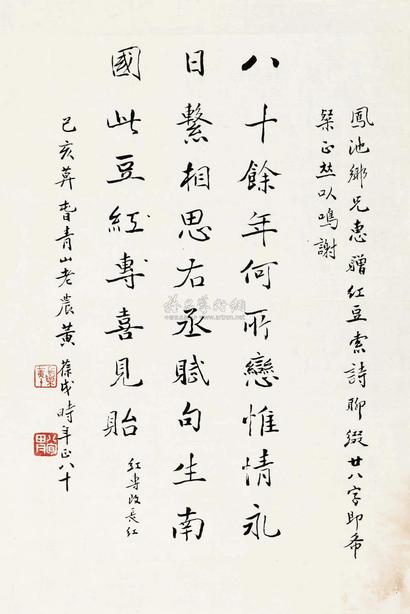 鳳池鄉兄惠贈红豆索詩聊綴廿八字即希
粲正並以鳴謝
八十餘年何所戀惟情永
日繫相思右丞賦句生南
國此豆紅專喜見貽
红專改長红
己亥莫旾青山老農黃葆戉時年正八十